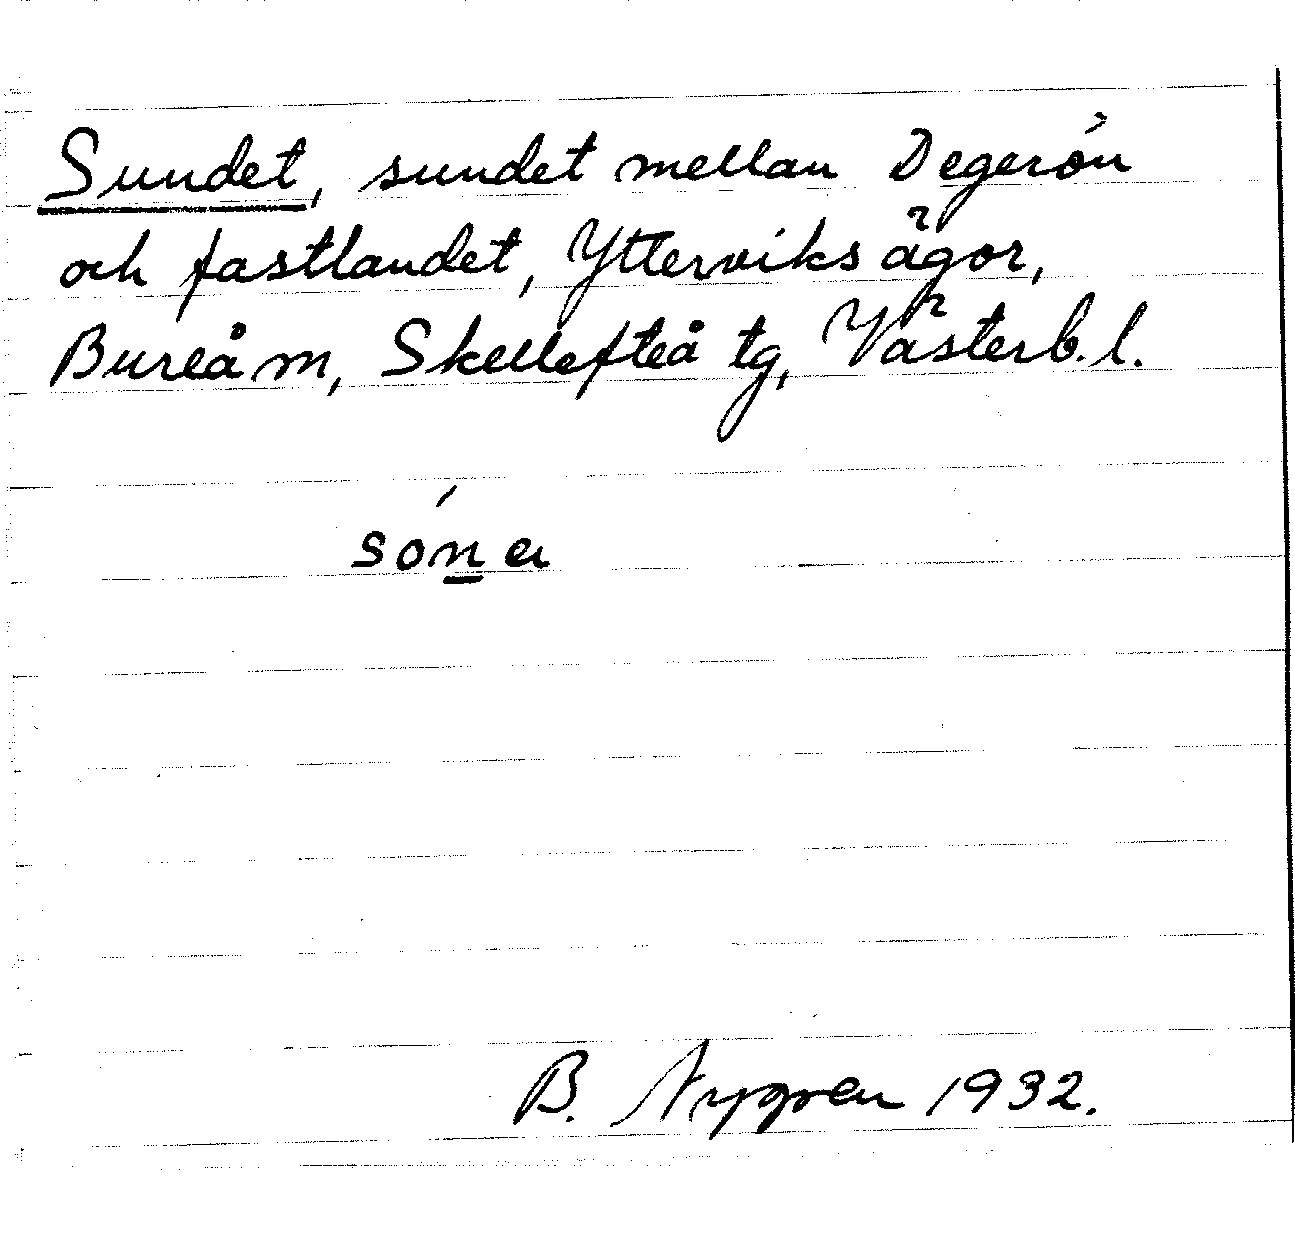 Sundet, sundet mellan Degerön
och fastlandet, Ytterviks ägor,
Bureå m, Skellefteå tg, Västerb. l.
són̲a
B. Nygren 1932.